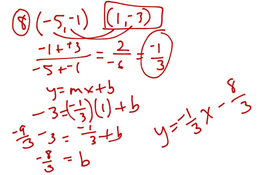 ⑧ (-5,-1) (1,-3)
(-1+ +3)/(-5+ -1) = 2/-6 = -1/3
y = mx+b
-3 = (-1/3)(1) + b
-9/3 -3 = -1/3 + b
-8/3 = b
y = -1/3 x - 8/3